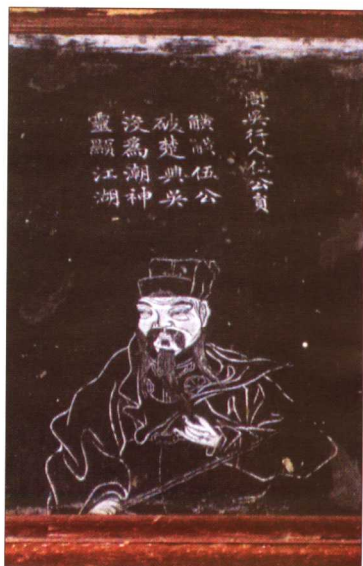 吳行人伍公員
伍公
破楚興吳
沒為潮神
靈顯江湖